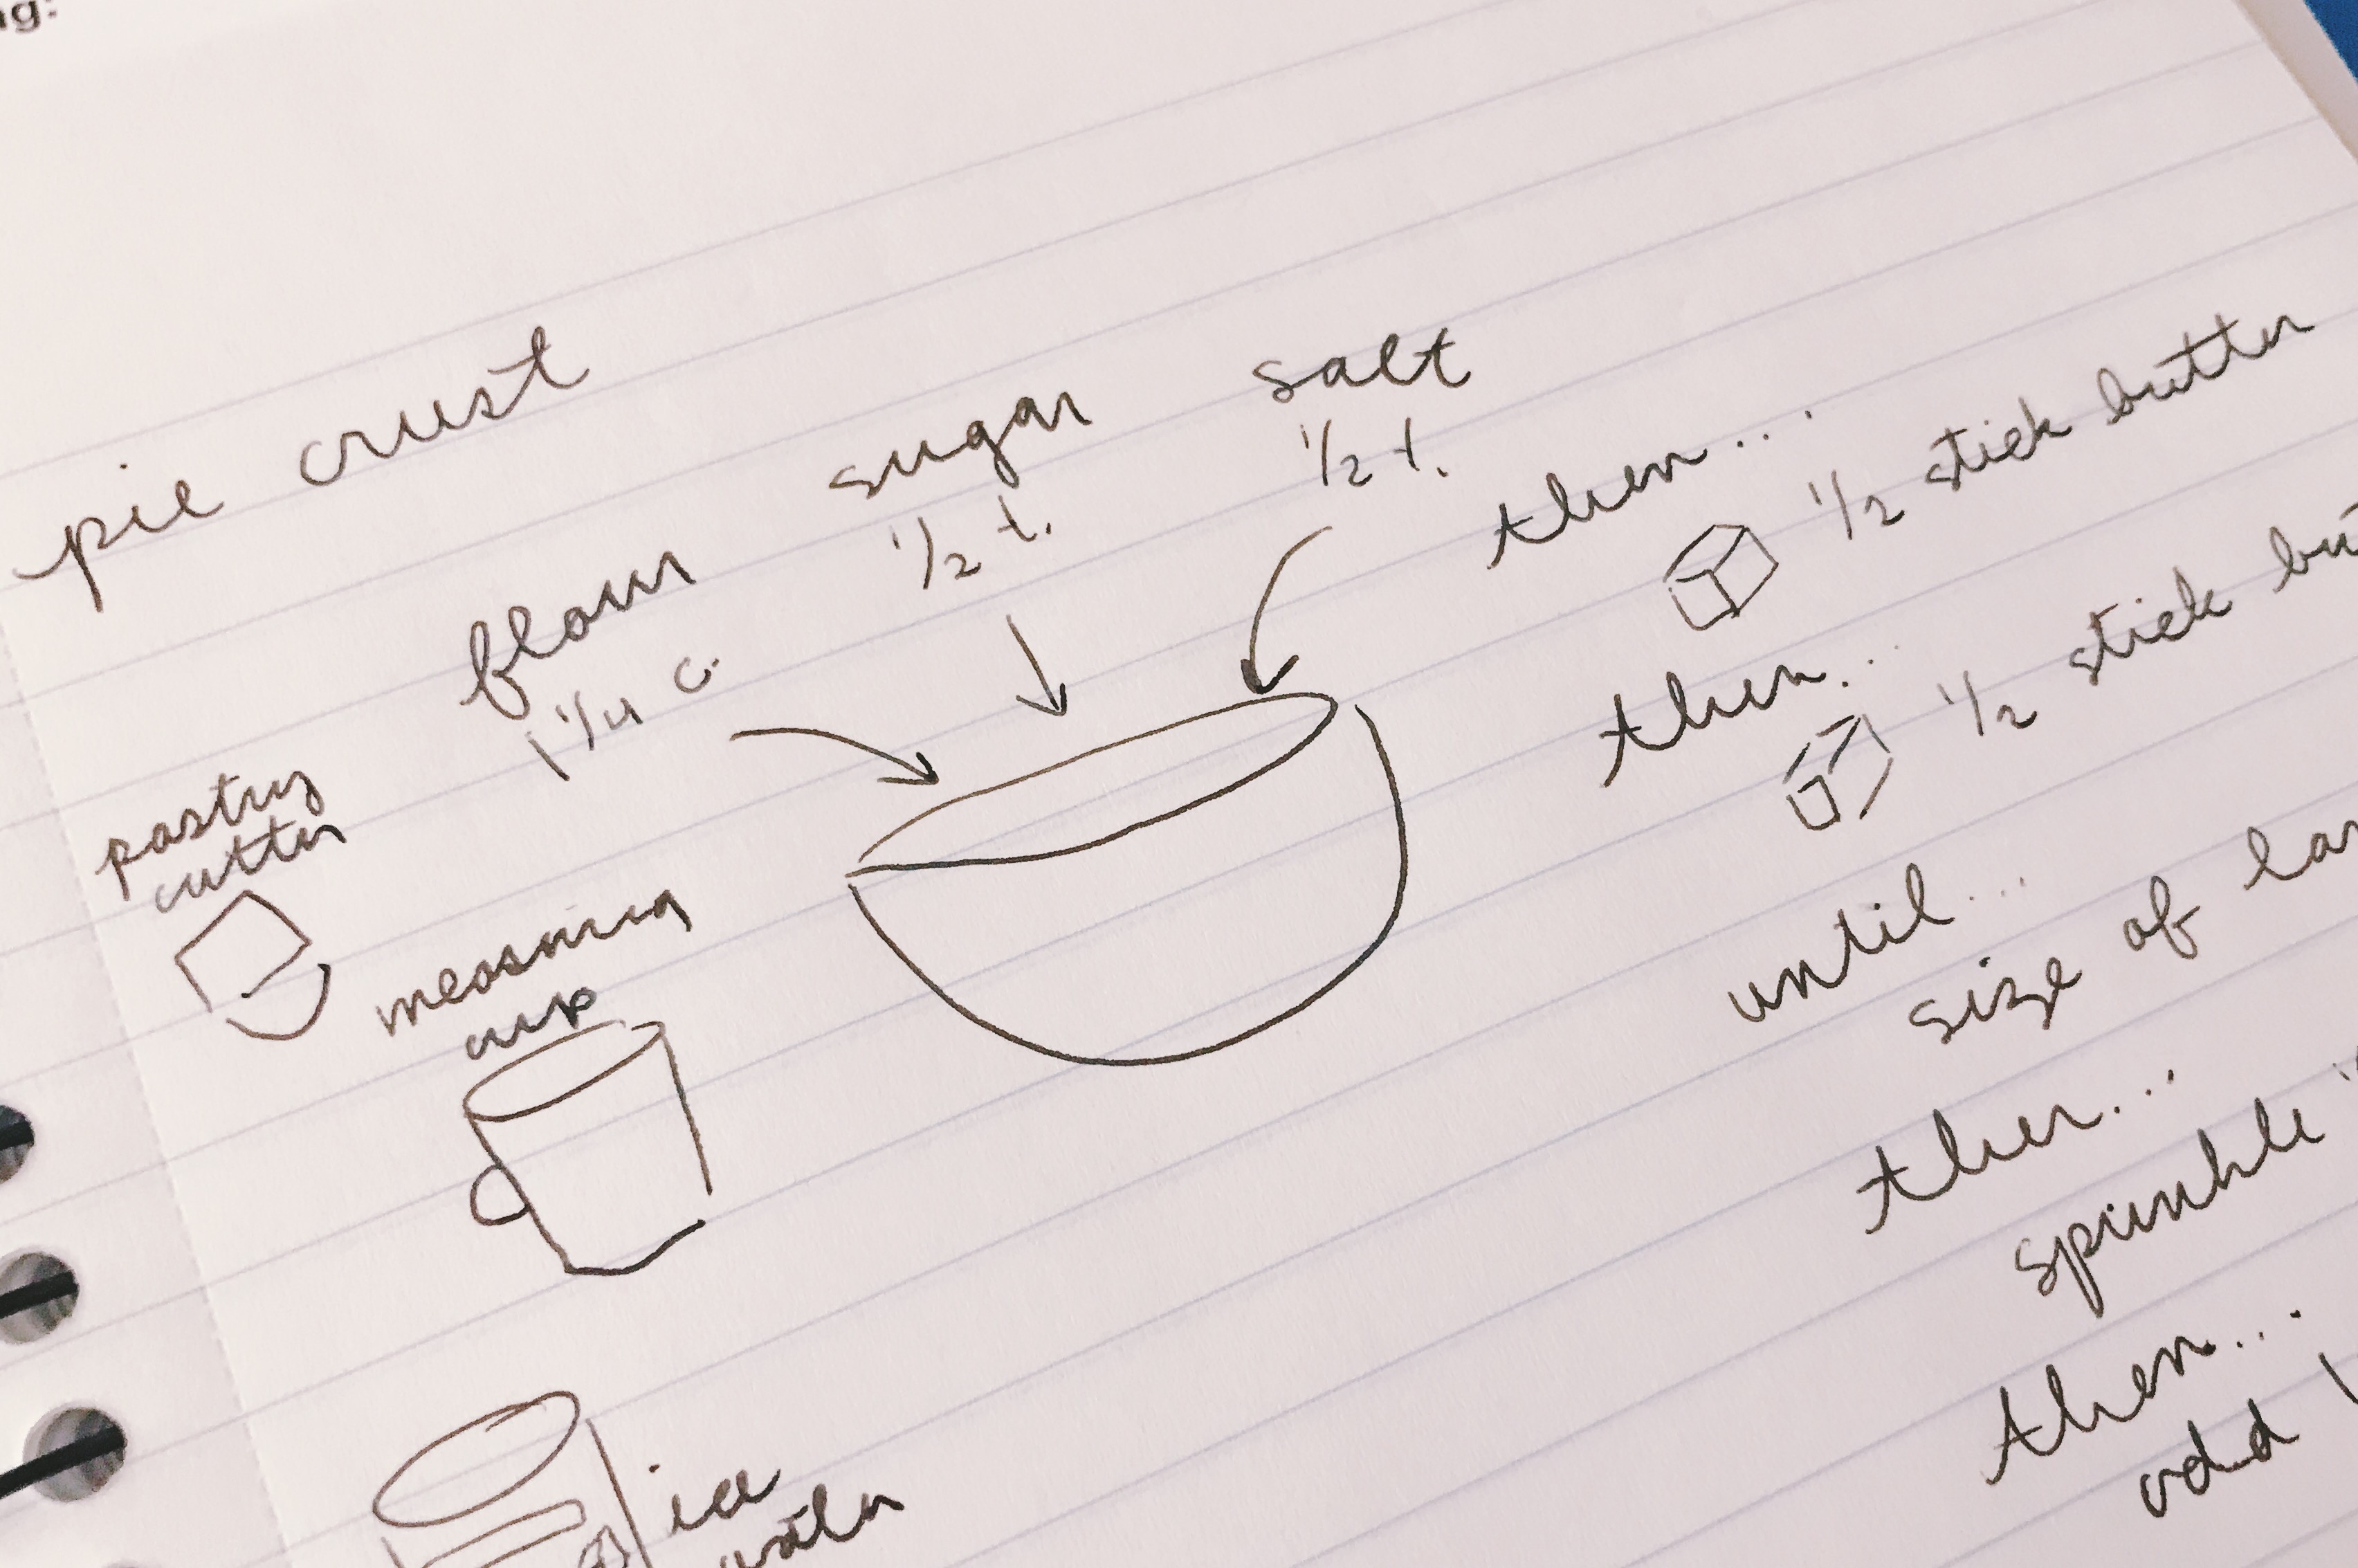 pie crust
flour
1 1/4 c.
sugar
1/2 t.
salt
1/2 t.
pastry
cutter
measuring
cup
ice
water
then...
1/2 stick butter
then...
1/2 stick
until...
size of
then...
sprinkle
then...
add